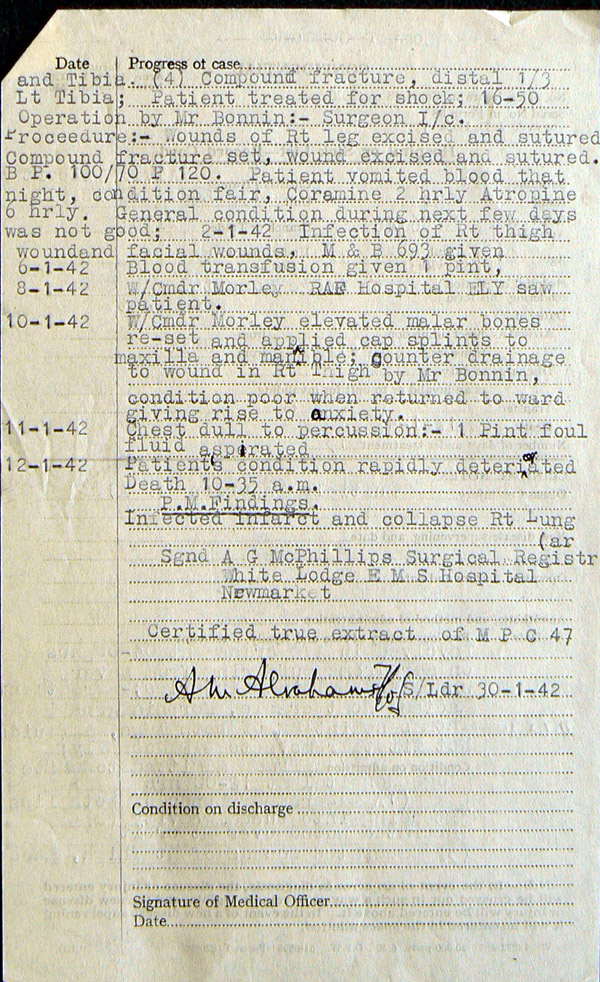 Date Progress of case
and Tibia. (4) Compound fracture, distal 1/3
Lt Tibia; Patient treated for shock; 16-50
Operation by Mr Bonnin:- Surgeon I/c.
Proceedure:- Wounds of Rt leg excised and sutured
Compound fracture set, wound excised and sutured.
B P. 100/70 P 120. Patient vomited blood that
night, condition fair, Coramine 2 hrly Atropine
6 hrly. General condition during next few days
was not good; 2-1-42 Infection of Rt thigh
woundand facial wounds, M & B 693 given
6-1-42 Blood transfusion given 1 pint,
8-1-42 W/Cmdr Morley RAF Hospital ELY saw
patient.
10-1-42 W/Cmdr Morley elevated malar bones
re-set and applied cap splints to
maxilla and manible; counter drainage
to wound in Rt Thigh by Mr Bonnin,
condition poor when returned to ward
giving rise to anxiety.
11-1-42 Chest dull to percussion:- 1 Pint foul
fluid aspirated
12-1-42 Patient's condition rapidly deteriorated
Death 10-35 a.m.
P.M.Findings.
Infected infarct and collapse Rt Lung
(ar
Sgnd A G McPhillips Surgical Registr
White Lodge E M S Hospital
Newmarket
Certified true extract of M P C 47
S/Ldr 30-1-42
Condition on discharge
Signature of Medical Officer
Date